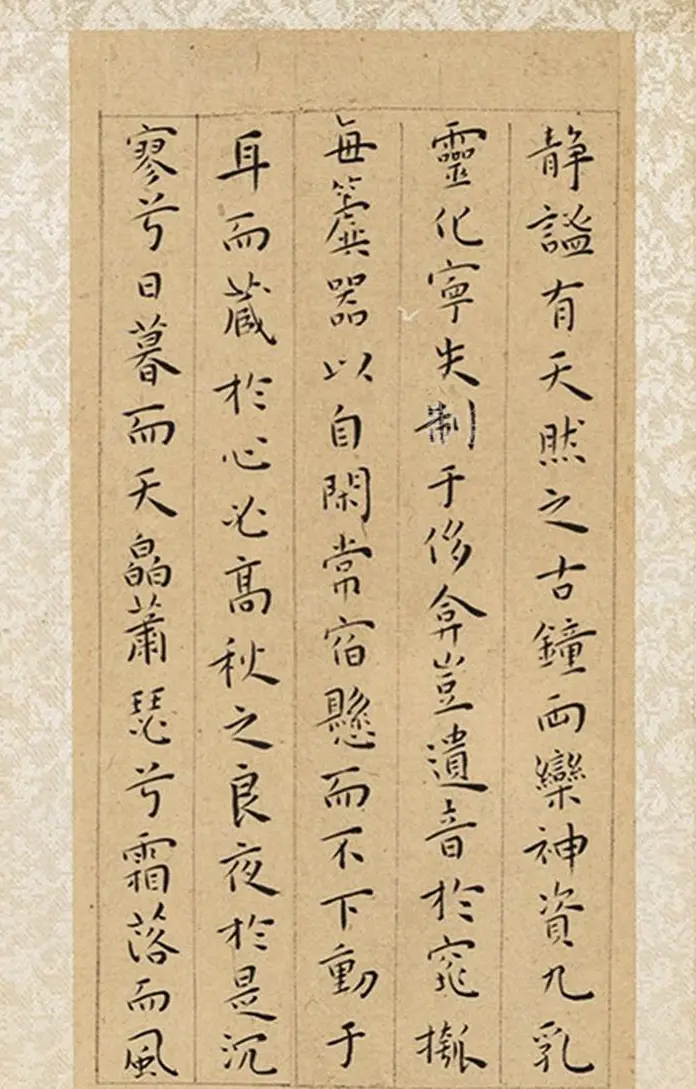 静謐有天然之古鐘両欒神資九乳
靈化寧失制于侈弇豈遺音於窕摦
每簴器以自閑常宿懸而不下動于
耳而蔵於心必髙秋之良夜於是沉
寥兮日暮而天皛蕭瑟兮霜落而風